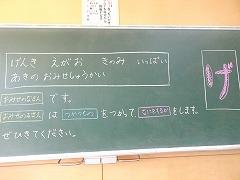 げんき えがお きのみ いっぱい
あきの おみせしょうかい
おみせのなまえ です。
おみせのなまえ は をつかって、 をします。
ぜひきてください。
げ